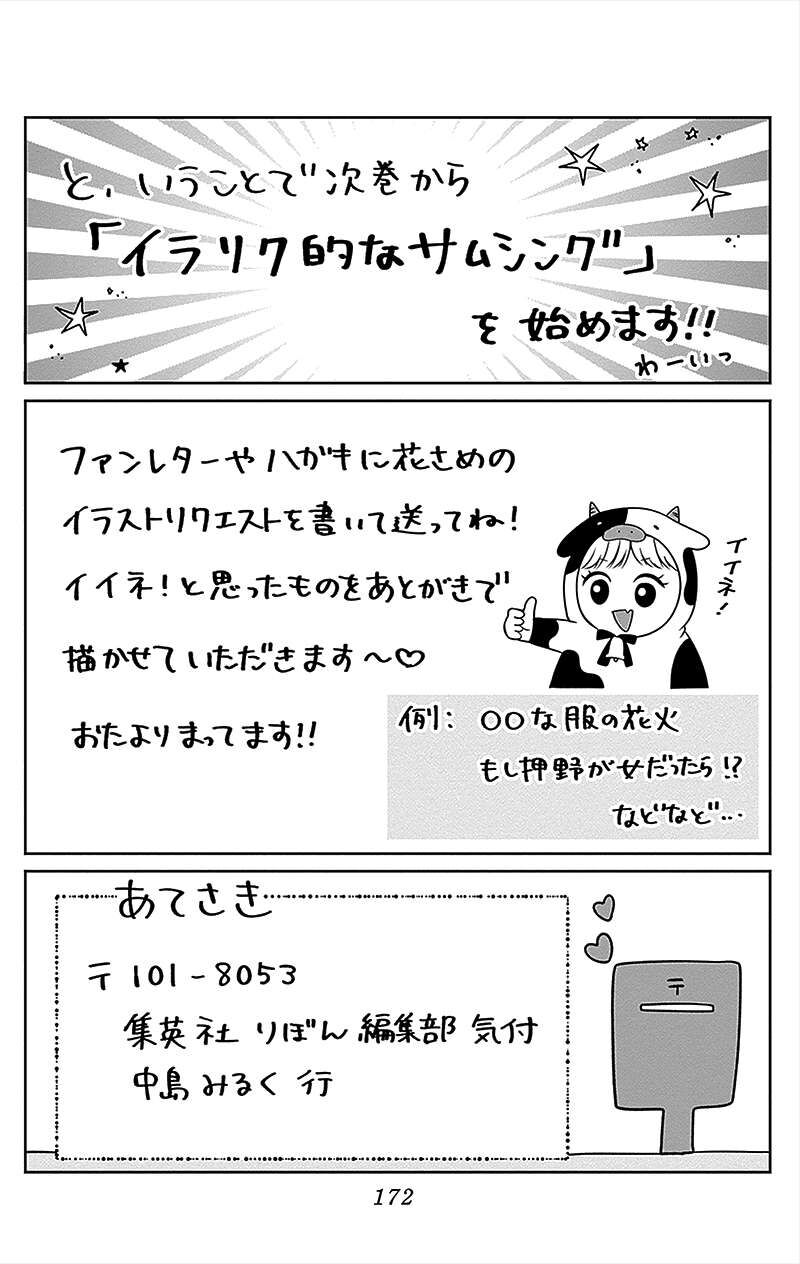 と、いうことで次巻から
「イラリク的なサムシング」
を始めます!!
わーいっ
ファンレターやハガキに花さめの
イラストリクエストを書いて送ってね!
イイネ!と思ったものをあとがきで
描かせていただきます〜♡
おたよりまってます!!
イイネ!
例: 〇〇な服の花火
もし押野が女だったら!?
などなど...
あてさき
〒101-8053
集英社 りぼん編集部 気付
中島みるく 行
〒
172